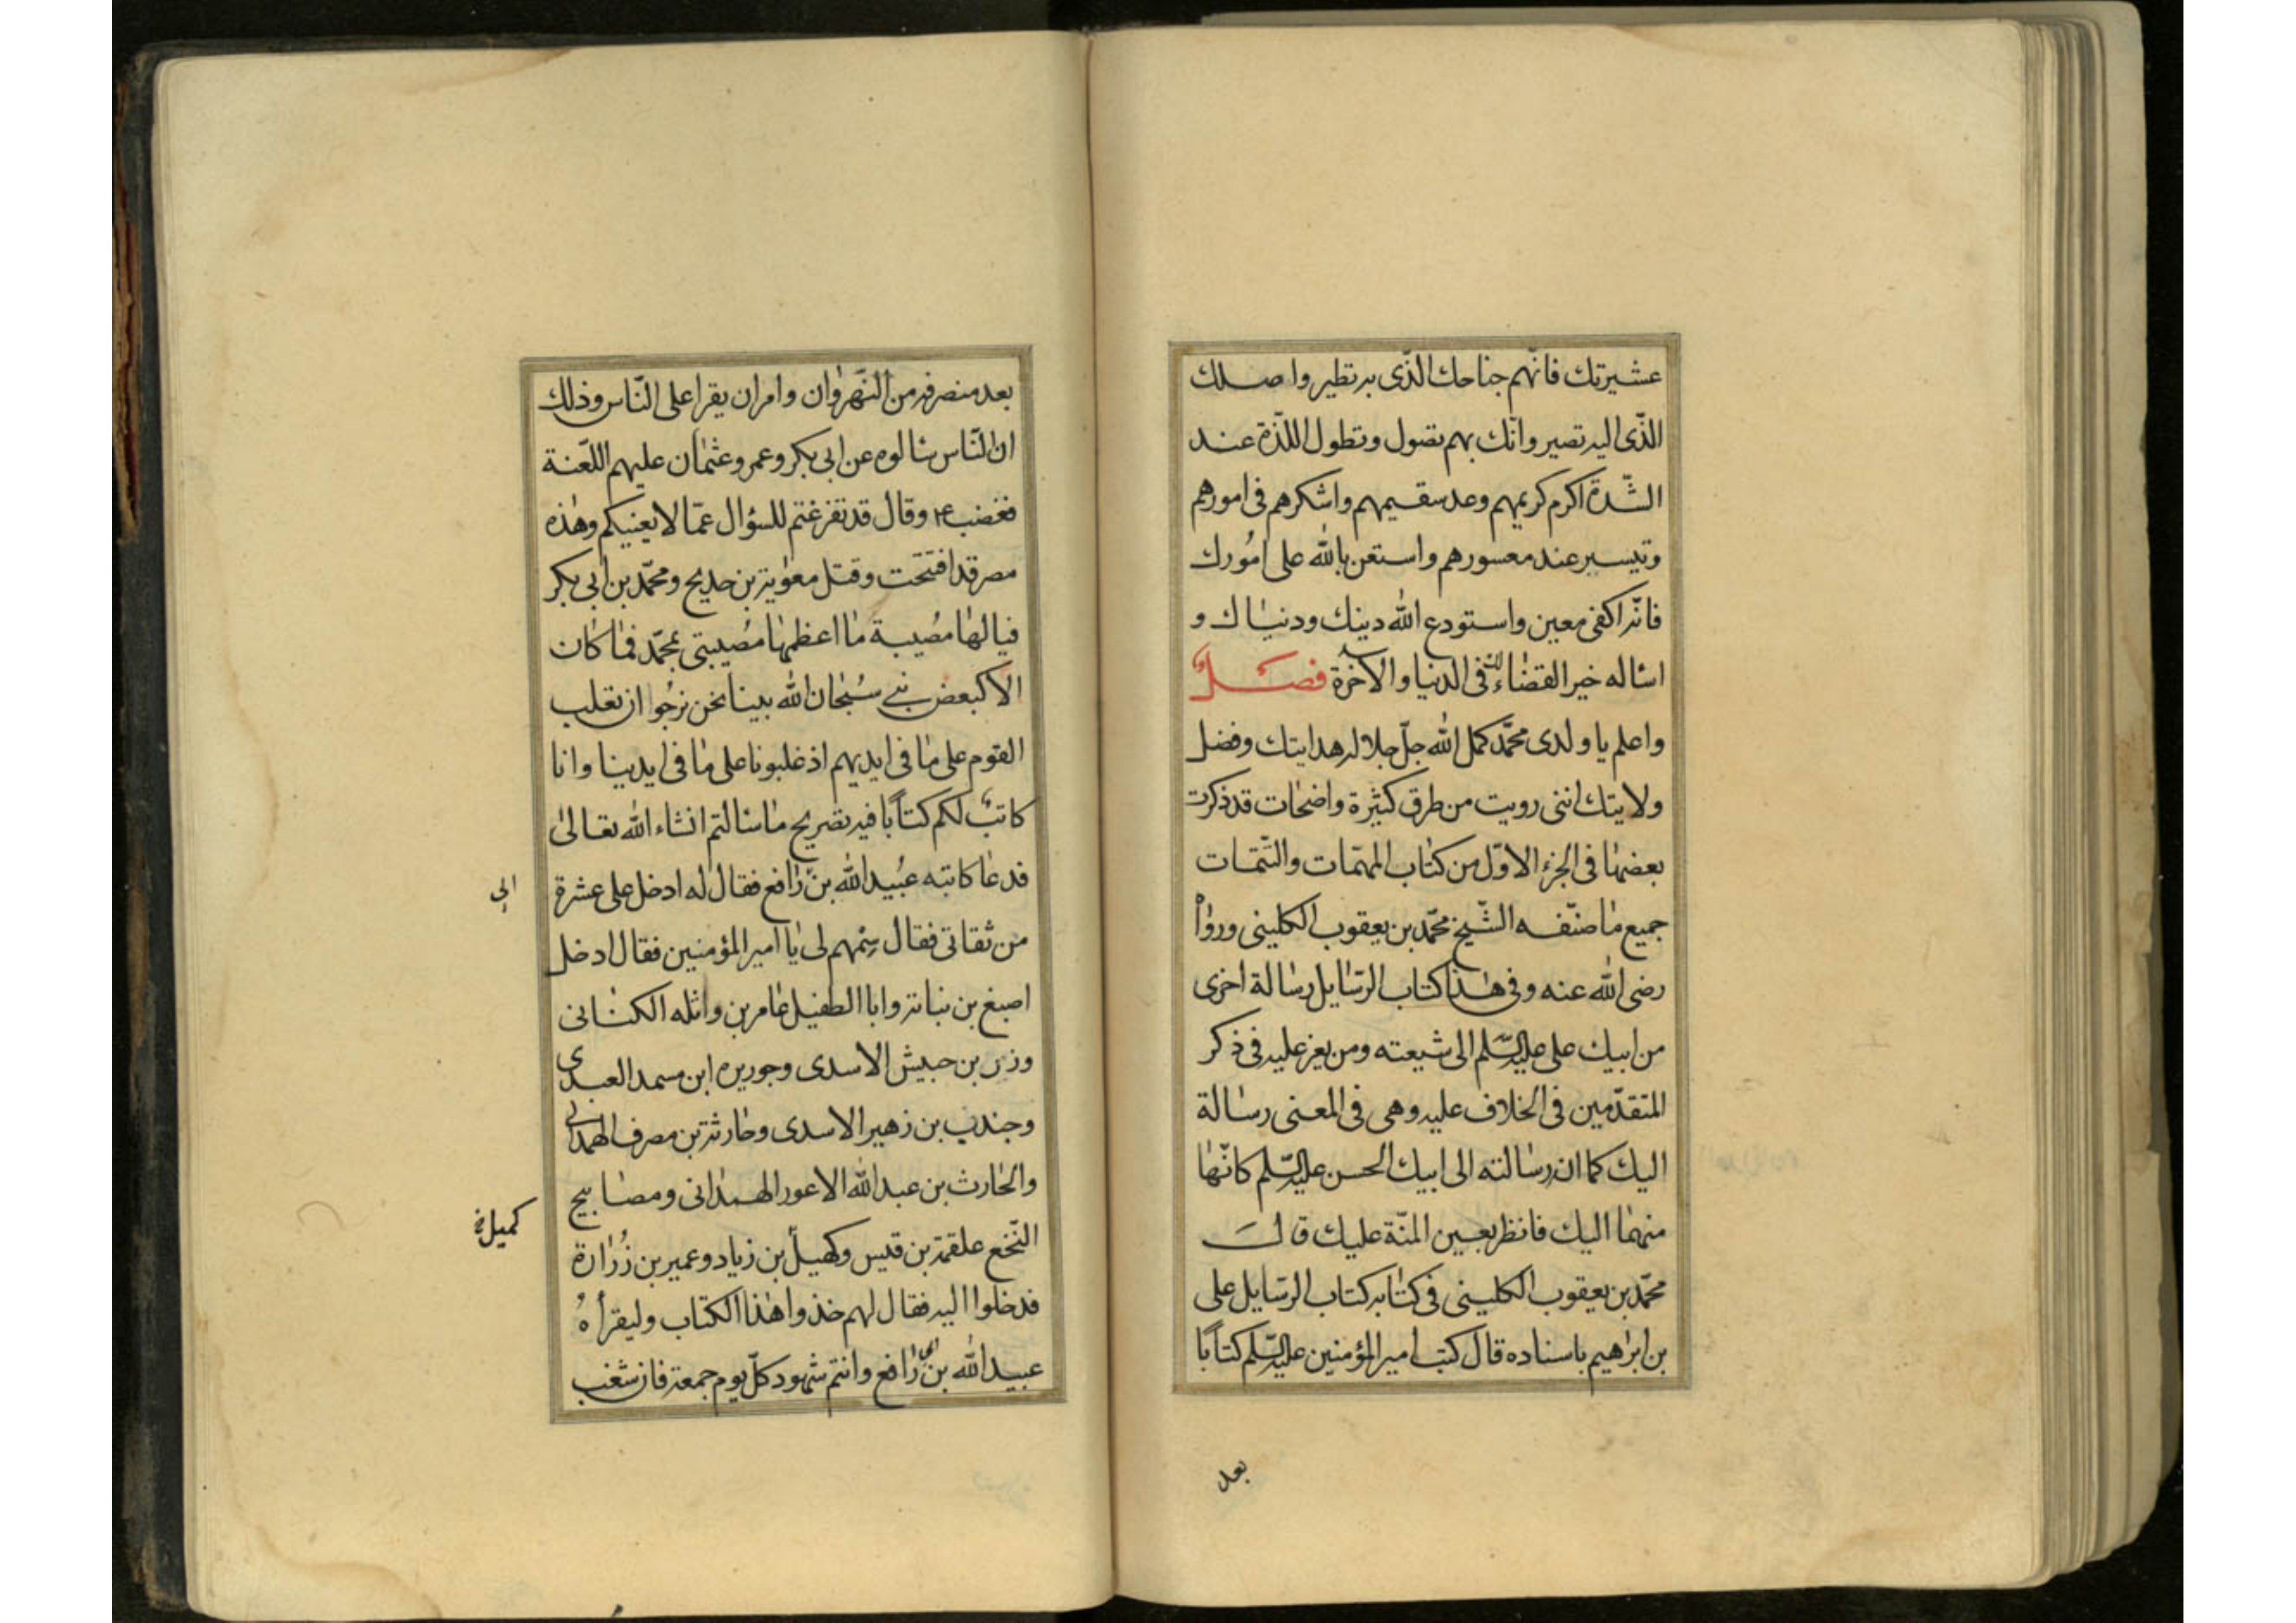 عشيرتك فانّهم جناحك الّذى به تطير واصلك
الّذى اليه تصير وانّك بهم تصول وتطول اللذّة عند
الشّدة اكرم كريمهم وعد سقيمهم واشكرهم فى امورهم
وتيسير عند معسورهم واستعن بالله على امُورك
فانّه اكفى معين واستودع الله دينك ودنياك و
اساله خير القضاء لك فى الدنيا والآخرة فصل
واعلم يا ولدى محمّد كمل الله جلّ جلاله هدايتك وفضل
ولايتك اننى رويت من طرق كثيرة واضحات قد ذكرت
بعضها فى الجزء الاوّل من كتاب المهمّات والتّتمّات
جميع ما صنّفه الشّيخ محمّد بن يعقوب الكلينى ورواه
رضى الله عنه وفى هذا كتاب الرّسايل رسالة اخرى
من ابيك على عليه السّلم الى شيعته ومن يعز عليه فى ذكر
المتقدّمين فى الخلاف عليه وهى فى المعنى رسالة
اليك كما ان رسالته الى ابيك الحسن عليه السّلم كانّها
منهما اليك فانظر بعين المنّة عليك قال
محمّد بن يعقوب الكلينى فى كتابه كتاب الرّسايل على
بن ابرهيم باسناده قال كتب امير المؤمنين عليه السّلم كتابًا
بعد
بعد منصرفه من النّهروان وامر ان يقرا على النّاس وذلك
ان النّاس سالوه عن ابى بكر وعمر وعثمان عليهم اللّعنة
فغضب ع وقال قد تفرغتم للسؤال عمّا لا يعنيكم وهذه
مصر قد افتتحت وقتل معوية بن حديج ومحمّد بن ابى بكر
فيالها مصُيبة ما اعظمها مصُيبتى بمحمّد فما كان
الا كبعض بنى سُبحان الله بينا نحن نرجُوا ان نغلب
القوم على ما فى ايديهم اذ غلبونا على ما فى ايدينا وانا
كاتب لكم كتابًا فيه تصريح ما سالتم انشاء الله تعالى
فدعا كاتبه عبُيد الله بن رافع فقال له ادخل على عشرة
الى
من ثقاتى فقال سمّهم لى يا امير المؤمنين فقال ادخل
اصبغ بن نباتة وابا الطفيل عامر بن واثله الكنانى
وزر بن حبيش الاسدى وجوريره ابن مسهد العبدى
وجندب بن زهير الاسدى وحارثة بن مصرف الهمدانى
والحارث بن عبد الله الاعور الهمدانى ومصابيح
كميل خ
النّخع علقمة بن قيس وكهيل بن زياد وعمير بن زُرارة
فدخلوا اليه فقال لهم خذوا هذا الكتاب وليقرأهُ
عبيد الله بن ابى رافع وانتم شهود كلّ يوم جمعة فان شغب